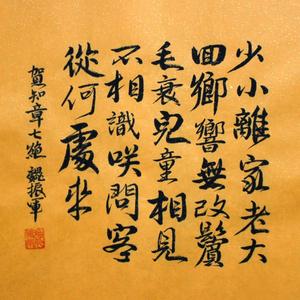 少小離家老大
回鄉響無改鬢
毛衰兒童相見
不相識咲問客
從何處來
賀知章七絕 魏振軍